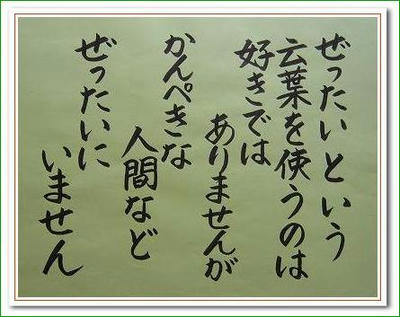 ぜったいという
云葉を使うのは
好きでは
ありませんが
かんぺきな
人間など
ぜったいに
いません